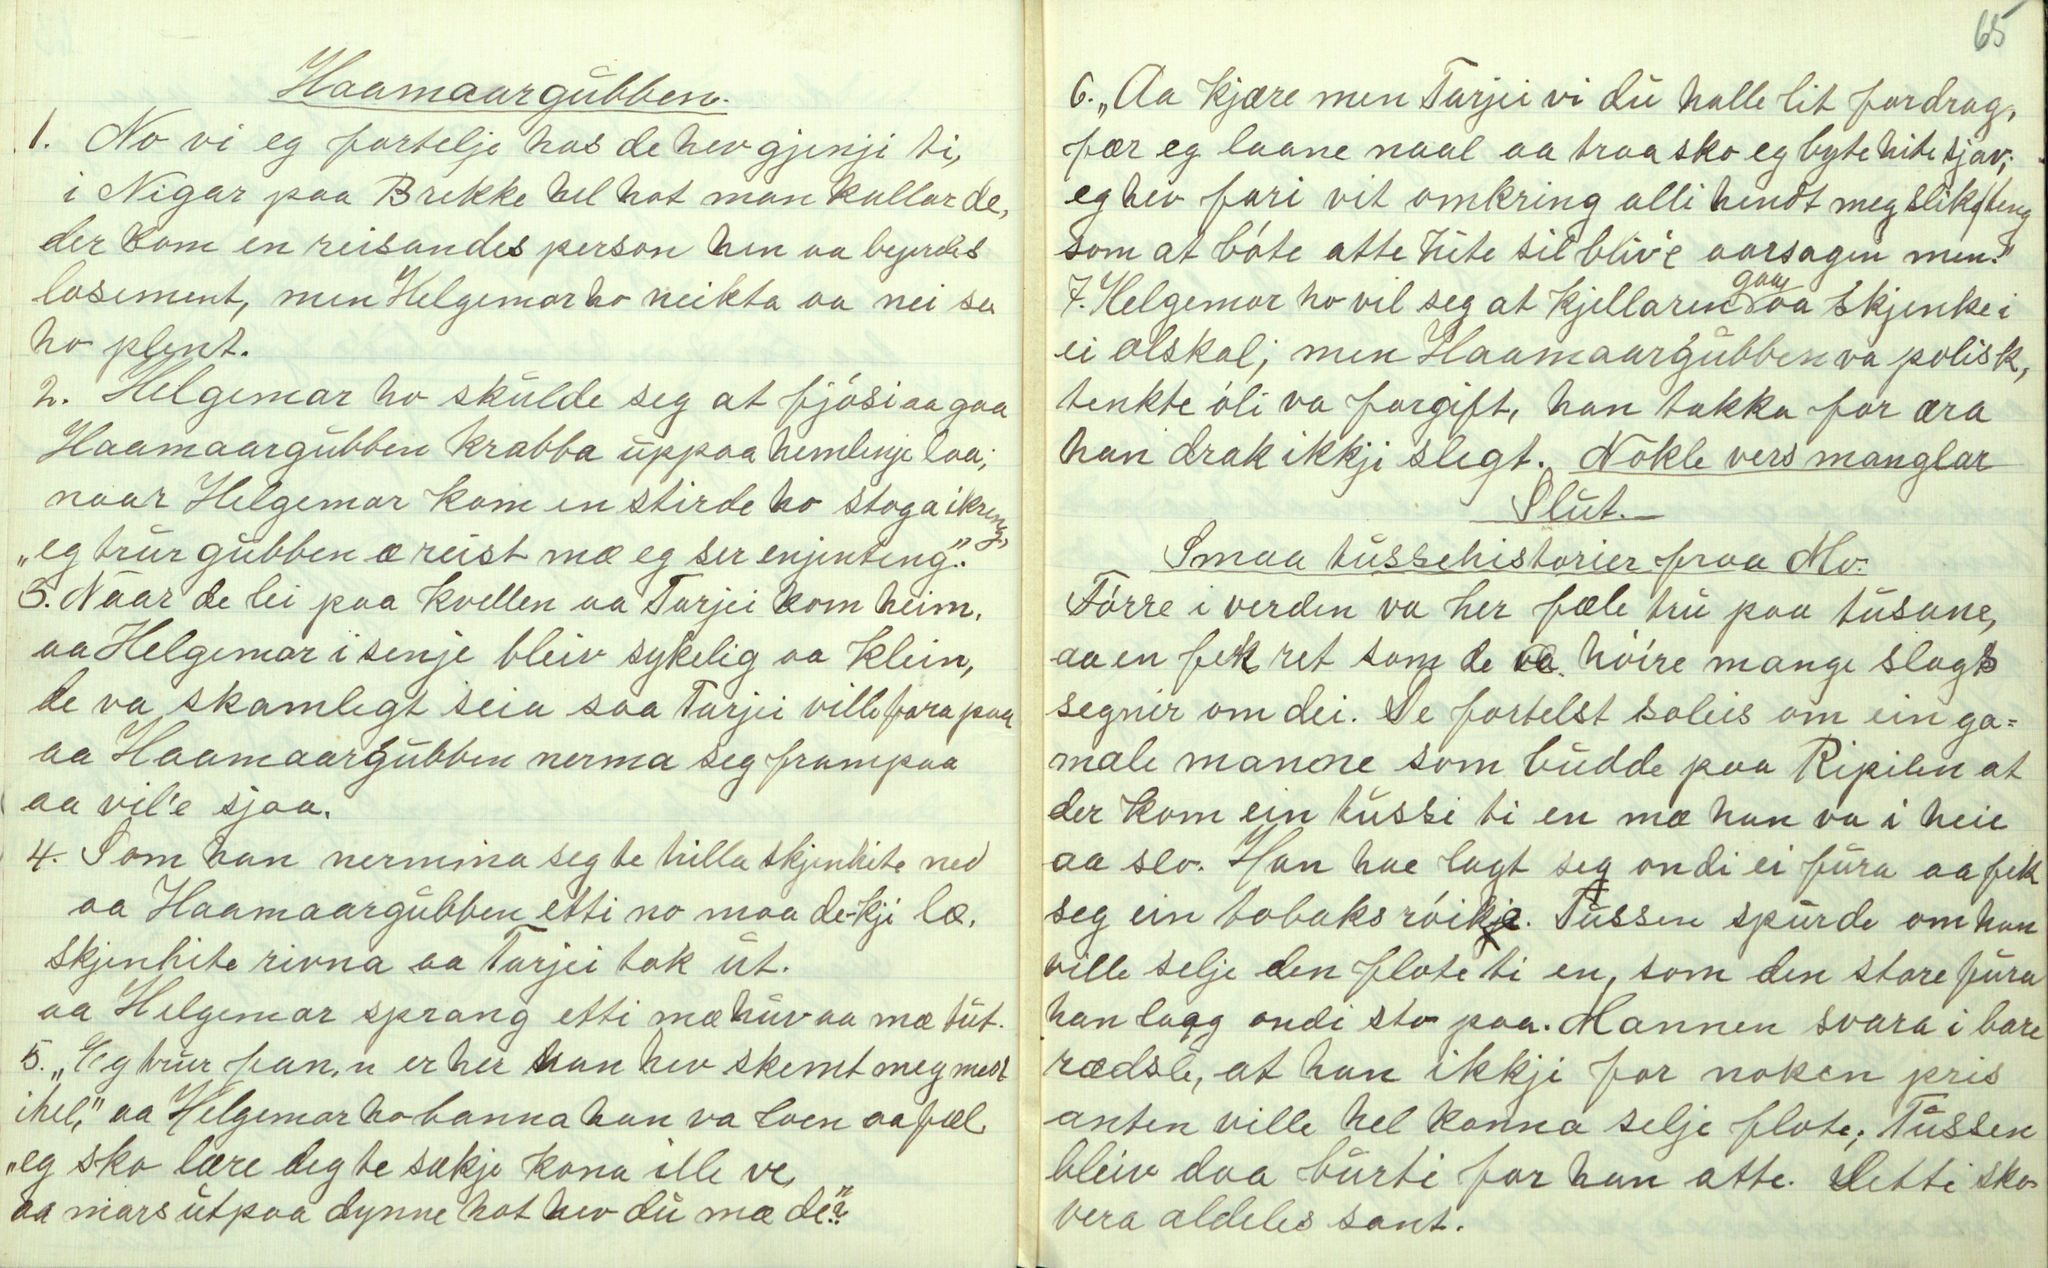 Haamaargubben.
1. No vi eg fortelje hos de hev gjenji ti,
i Nigar paa Brekke hel hot man kallar de,
der kom en reisandes person hen aa bejerdes
losement, men Helgemor ho neikta aa nei sa
ho plent.
2. Helgemor ho skulde seg at fjósi aa gaa
Haamaargubben krabba uppaa hemlinje laa;
naar Helgemor kom en stirde ho stoga ikreng,
„eg trur gubben æ reist mæ eg ser enjinteng".
3. Naar de lei paa kvellen aa Tarjei kom heim,
aa Helgemor i senje bleiv sykelig aa klein,
de va skamlegt seia saa Tarjei ville fara paa
aa Haamaargubben nerma seg frampaa
aa vil'e sjaa.
4. Som han nermma seg te hilla skjenhite ned
aa Haamaargubben etti no maa de-kji læ,
skjenhite rivna aa Tarjei tok ut.
aa Helgemor sprang etti mæ huv aa mæ tut.
5. „Eg trur fan, n er her han hev skemt meg mest
ihel," aa Helgemor ho banna han va loen aa fæl
„eg sko lære deg te sækje kona ille ve,
aa mars utpaa dynne hot hev du mæ de?"
65
6. „Aa kjære men Tarjei vi du halle lit fordrag,
fær eg laane naal aa traa sko eg byte hite sjøv;
eg hev fari vit omkring alli hendt meg slik teng
som at bóte atte hite sil bliv'e aarsagen men."
7. Helgemor ho vil seg at kjellaren gaa aa skjenke i
ei ølskal; men Haamaargubben va polisk,
tenkte óli va forgift, han takka for æra
han drak ikkji slegt. Nokle vers manglar
Slut.
Smaa tussehistorier fraa Mo.
Fórre i verden va her fæle tru paa tusane,
aa en fek ret som de va hóire mange slags
segnir om dei. De fortelst soleis om ein ga=
male manne som budde paa Ripilen at
der kom ein tussi ti en mæ han va i heie
aa slo. Han hae lagt seg ondi ei fura aa fek
seg ein tobaks róik. Tussen spurde om han
ville selje den flote ti en, som den store fura
han lagg ondi sto paa. Mannen svara i bare
rædsle, at han ikkji for noken pris
anten ville hel konna selje flote. Tussen
bleiv daa burti for han atte. Detti sko
vera aldeles sant.